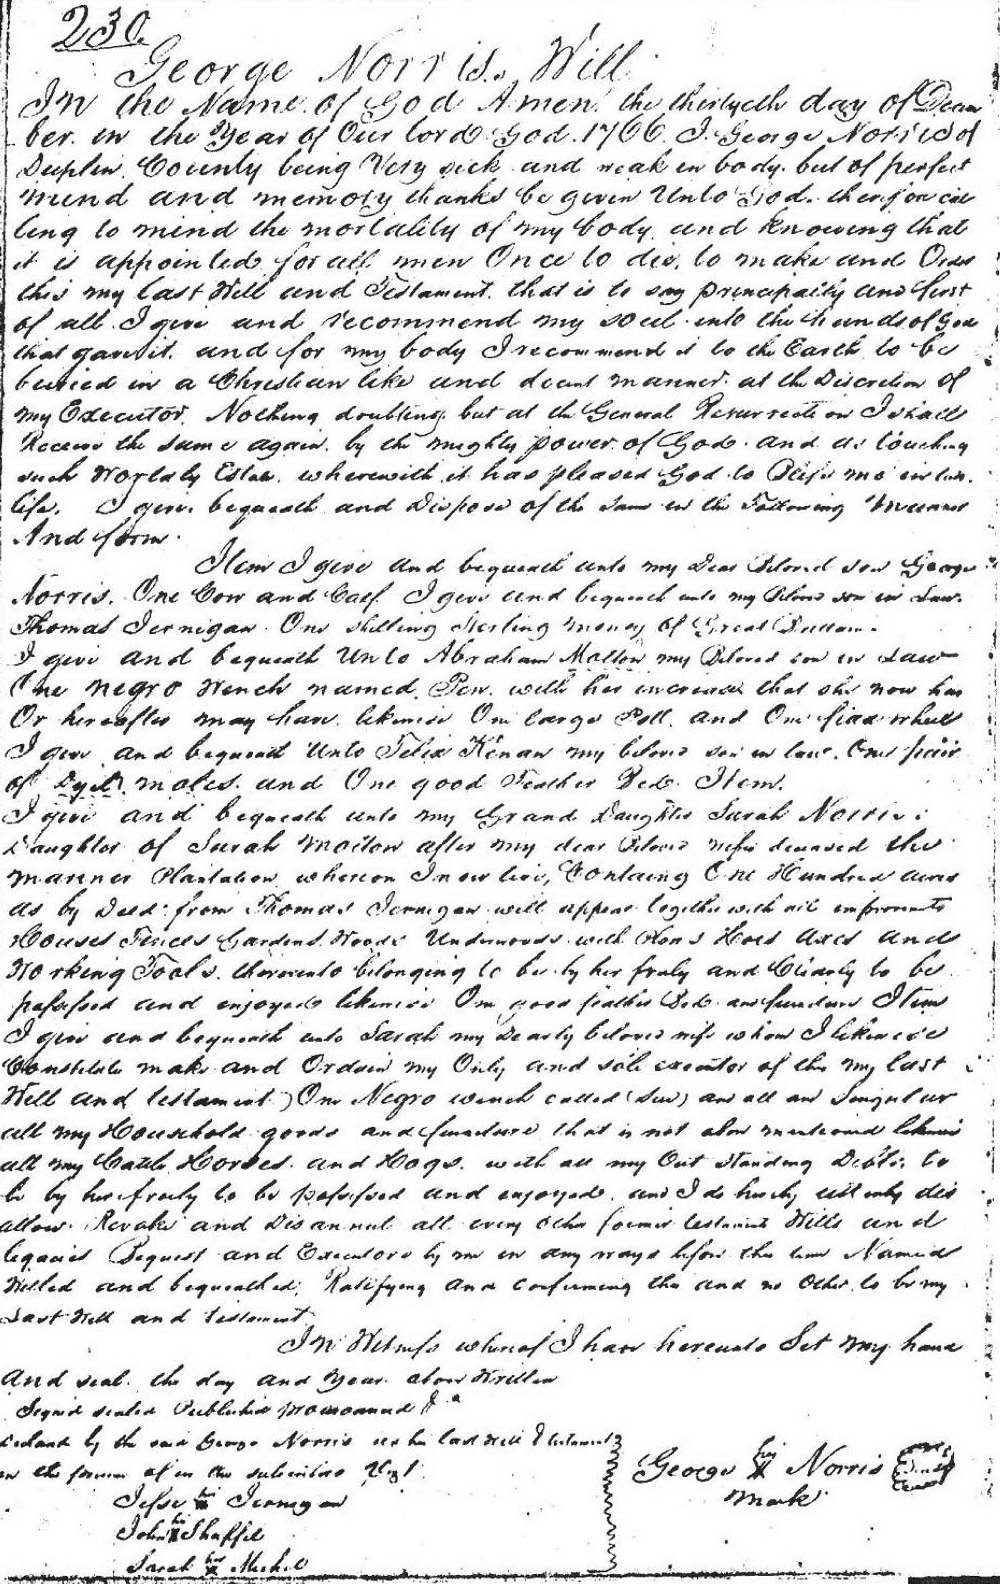 230.
George Norris, Will
In the Name of God Amen. the thirtyeth day of Decem
ber. in the Year of Our lord God. 1766. I. George Norris of
Duplin County being Very sick and weak in body. but of perfect
mind and memory thanks be given Unto God. therefore cal
ling to mind the mortality of my body and Knowing that
it is appointed for all men Once to die, to make and Order
this my last Will and Testament. that is to say principally and first
of all. I give and recommend my soul into the hands of God
that gave it. and for my body I recommend it to the Earth to be
buried in a Christian like and decent manner at the Discretion of
my Executor. Nothing doubting but at the General Resurrection I shall
Receive the same again. by the mighty power of God. and as touching
such Worldly Estate. wherewith it has pleased God to Bless me in this
life. I give. bequeath and Dispose of the Same in the Following Manner
And form.
Item I give and bequeath unto my Dear Beloved son George
Norris. One Cow and Calf. I give and bequeath unto my Beloved son in Law.
Thomas Jernigan. One shilling Sterling money of Great Brittain.
I give and bequeath Unto Abraham Molton my Beloved son in Law
One negro Wench named. Pen. with her increase that she now has
Or hereafter may have. likewise One large Pott. and One flax wheel
I give and bequeath Unto Felix Kenan my beloved son in law. One pair
of molds. and One good Feather Bed. Item.
I give and bequeath unto my Grand Daughter Sarah Norris
Daughter of Sarah Molton after my dear Beloved wife deceased the
manner Plantation whereon I now live, Containg One Hundred acres
as by Deed from Thomas Jernigan will appear together with all improvements
Houses Fences Gardens Woods Underwoods with Hoes Axes and
Working Tools. thereunto belonging to be by her fruly and Clearly to be
possessed and enjoyed likewise One good feather Bed and furniture Item
I give and bequeath unto Sarah my Dearly beloved wife whom I likewise
Constitute make and Ordain my Only and sole executor of this my last
Will and testament) One Negro wench called (Sue) and all and Singular
all my Household goods and furniture that is not above mentioned likewise
all my Cattle, Horses. and Hogs. with all my Out standing Debts. to
be by her freely to be possessed and enjoyed. and I do hereby utterly dis
allow. Revoke and Disannul all every other former testament Wills and
legacies Bequest and Executors by me in any ways before this time Named
Willed and bequeathed. Ratifying and confirming this and no Other to be my
Last Will and testament
In Witness whereof I have hereunto Set my hand
And seal. the day and Year above Written
Signed sealed Published pronounced &
Declared by the said George Norris as his last Will & testament
in the presence of us the subscribers
George his X Norris
mark
Jesse his X Jernigan
John his X Shuffel
Sarah her X Michel